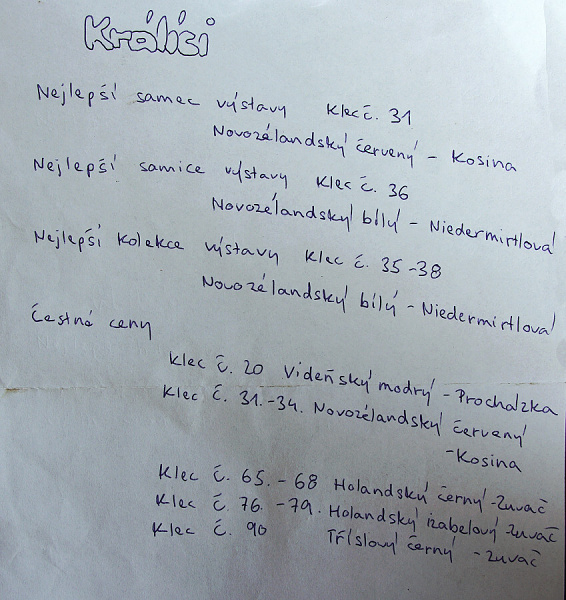 Králíci
Nejlepší samec výstavy Klec č. 31
Novozélandský červený - Kosina
Nejlepší samice výstavy Klec č. 36
Novozélandský bílý - Niedermirtlová
Nejlepší kolekce výstavy Klec č. 35-38
Novozélandský bílý - Niedermirtlová
Čestné ceny
Klec č. 20 Vídeňský modrý - Procházka
Klec č. 31.-34. Novozélandský červený
- Kosina
Klec č. 65.-68 Holandský černý - Zuvač
Klec č. 76.-79. Holandský izabelový - Zuvač
Klec č. 90 Tříslový černý - Zuvač